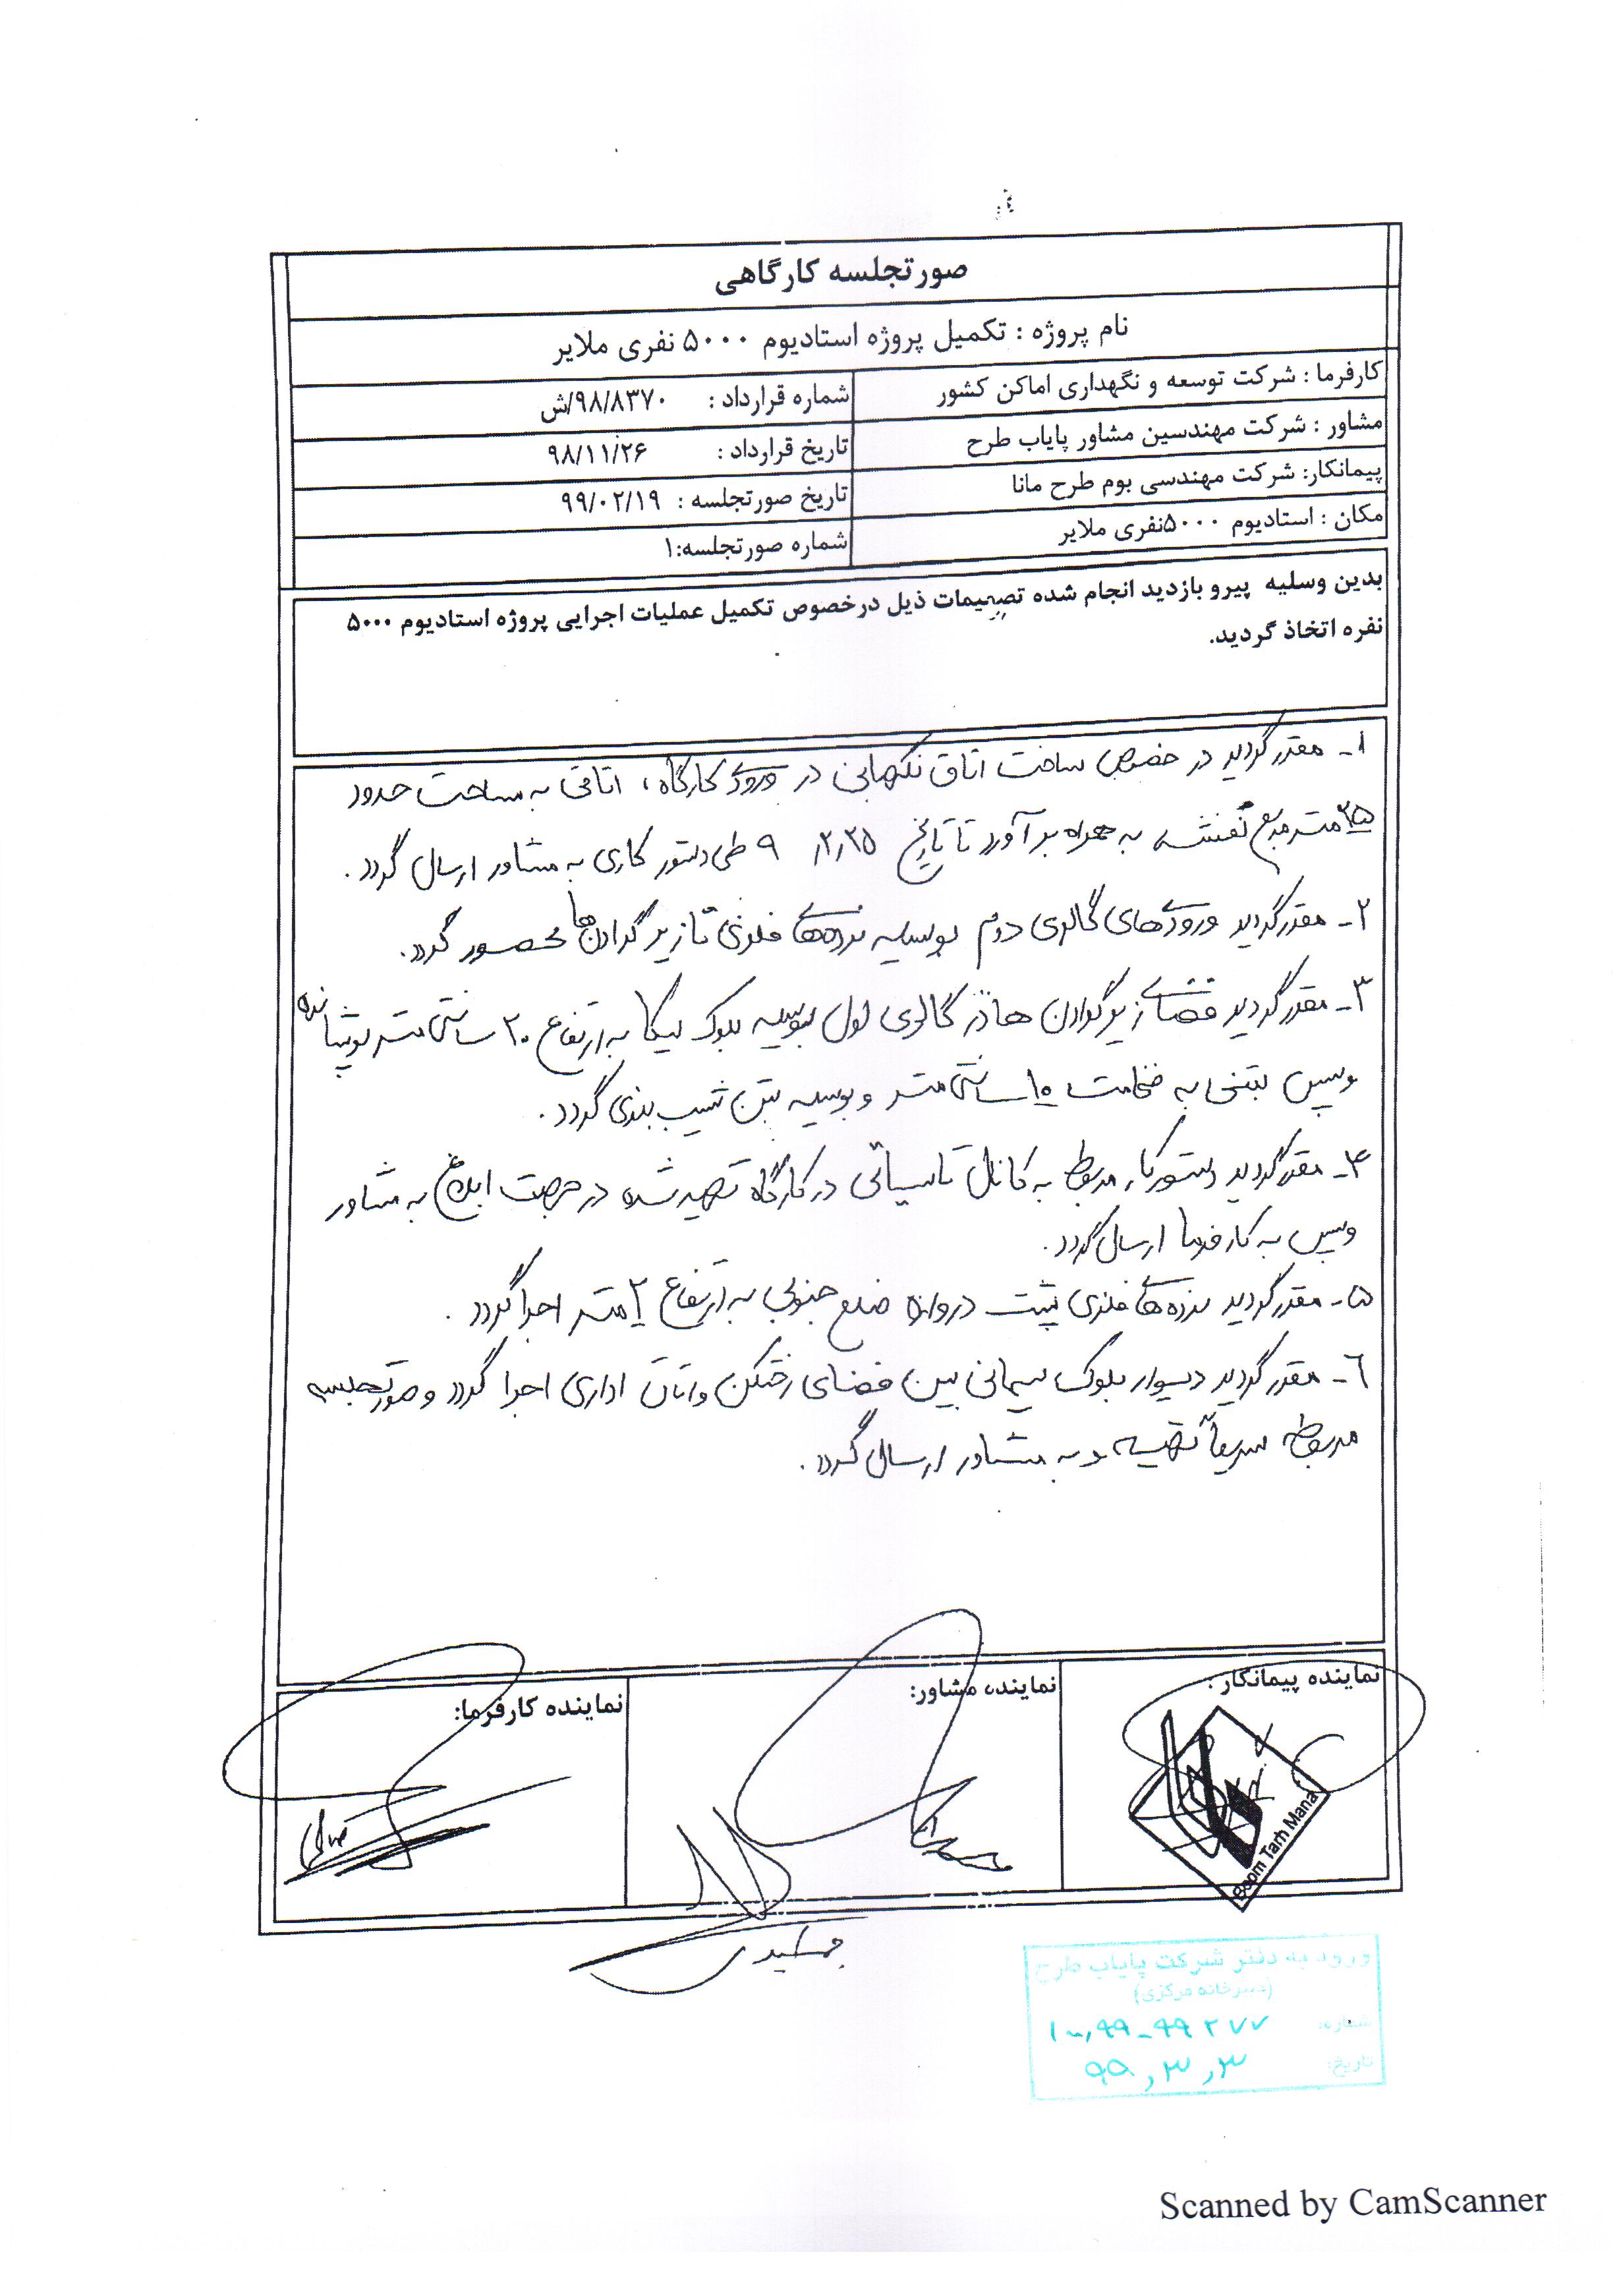 صورتجلسه کارگاهی
نام پروژه : تکمیل پروژه استادیوم ۵۰۰۰ نفری ملایر
کارفرما : شرکت توسعه و نگهداری اماکن کشور
شماره قرارداد : ۹۸/۸۳۷۰/ش
مشاور : شرکت مهندسین مشاور پایاب طرح
تاریخ قرارداد : ۹۸/۱۱/۲۶
پیمانکار: شرکت مهندسی بوم طرح مانا
تاریخ صورتجلسه : ۹۹/۰۲/۱۹
مکان : استادیوم ۵۰۰۰نفری ملایر
شماره صورتجلسه:۱
بدین وسلیه پیرو بازدید انجام شده تصمیمات ذیل درخصوص تکمیل عملیات اجرایی پروژه استادیوم ۵۰۰۰
نفره اتخاذ گردید.
۱- مقرر گردید در خصوص ساخت اتاق نگهبانی در ورودی کارگاه، اتاقی به مساحت حدود
۳۵ مترمربع نقشه به همراه برآورد تا تاریخ طی دستور کاری به مشاور ارسال گردد.
۲- مقرر گردید ورودی‌های گالری دوم بوسیله نرده‌های فلزی تا زیر گرادن‌ها محصور گردد.
۳- مقرر گردید فضای زیر گرادن ها در گالری اول بوسیله بلوک لیکا به ارتفاع ۲۰ سانتی متر پوشانده
وسپس بتنی به ضخامت ۱۰ سانتی متر و بوسیله بتن شیب بندی گردد.
۴- مقرر گردید دستورکار مربوط به کانال تاسیساتی در کارگاه تهیه شده در جهت ابلاغ به مشاور
وسپس به کارفرما ارسال گردد.
۵- مقرر گردید نرده های فلزی پشت دروازه ضلع جنوبی به ارتفاع ۲ متر اجرا گردد.
۶- مقرر گردید دیوار بلوک سیمانی بین فضای رختکن و اتاق اداری اجرا گردد و صورتجلسه
مربوطه سریعاً تهیه و به مشاور ارسال گردد.
نماینده پیمانکار :
نماینده مشاور:
نماینده کارفرما:
Boom Tarh Mana
جمشیدی
ورود به دفتر شرکت پایاب طرح
(دبیرخانه مرکزی)
شماره:
تاریخ: ۹۹,۳,۳
Scanned by CamScanner